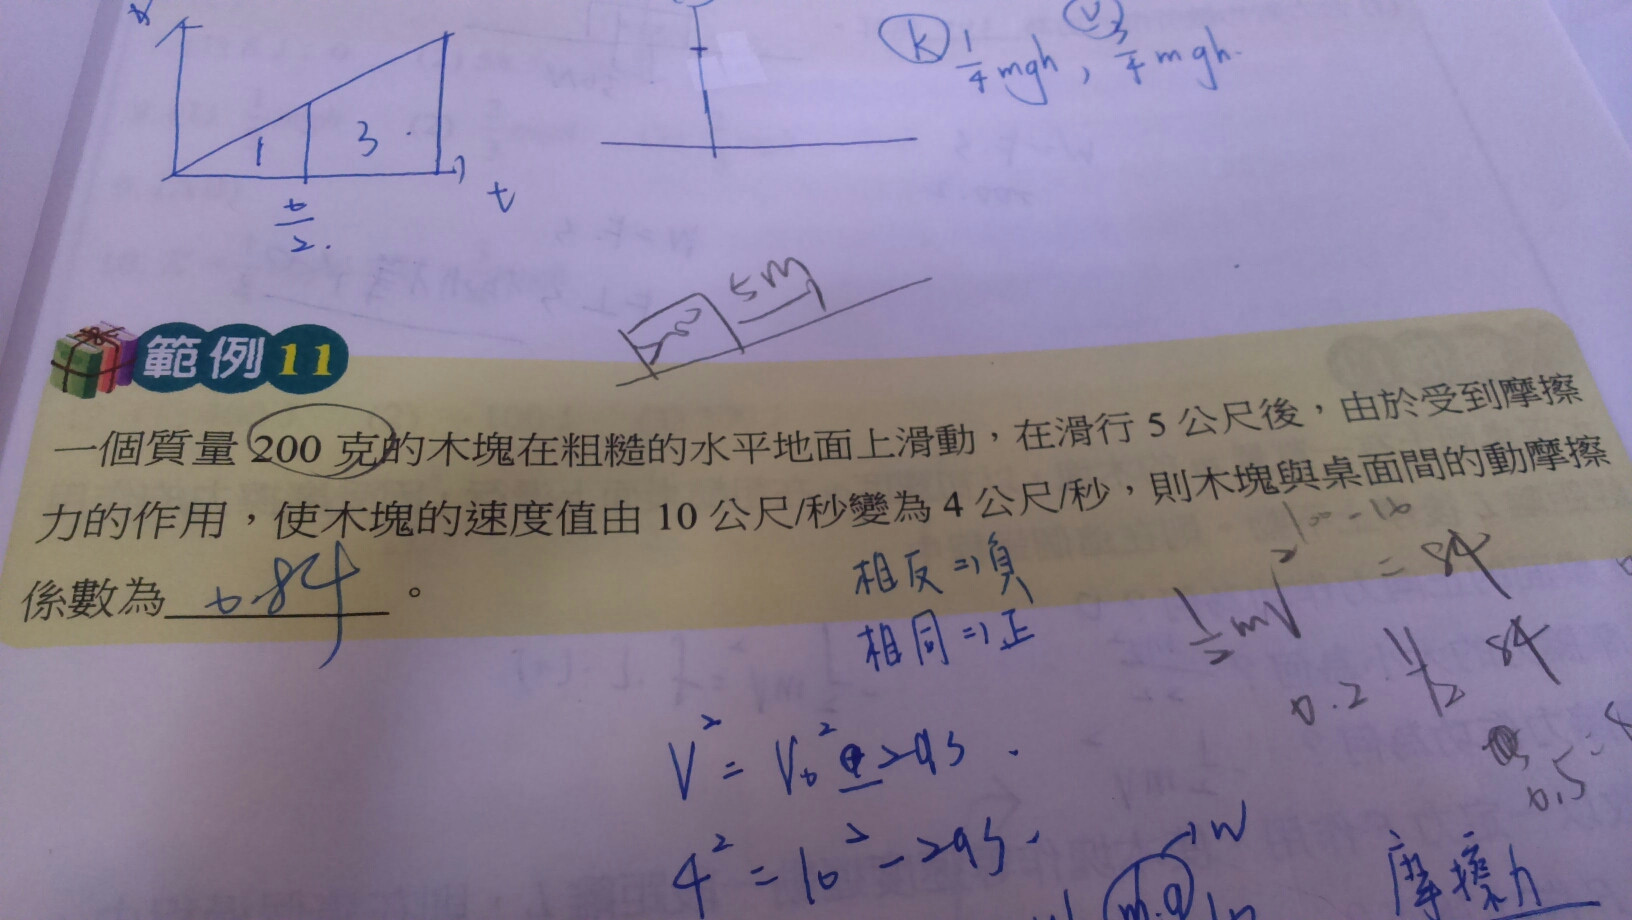 t
1
3
t/2
Ⓚ 1/4 mgh , Ⓤ 3/4 mgh.
5M
範例 11
一個質量 200 克的木塊在粗糙的水平地面上滑動，在滑行 5 公尺後，由於受到摩擦
力的作用，使木塊的速度值由 10 公尺/秒變為 4 公尺/秒，則木塊與桌面間的動摩擦
係數為 0.84 。
100-16
相反⇒負
= 84
相同⇒正
1/2 mV²
0.2 · 1/2 84
V² = V₀² - 2as .
0.5 =
4² = 10² - 2as .
W
m.a
摩擦力